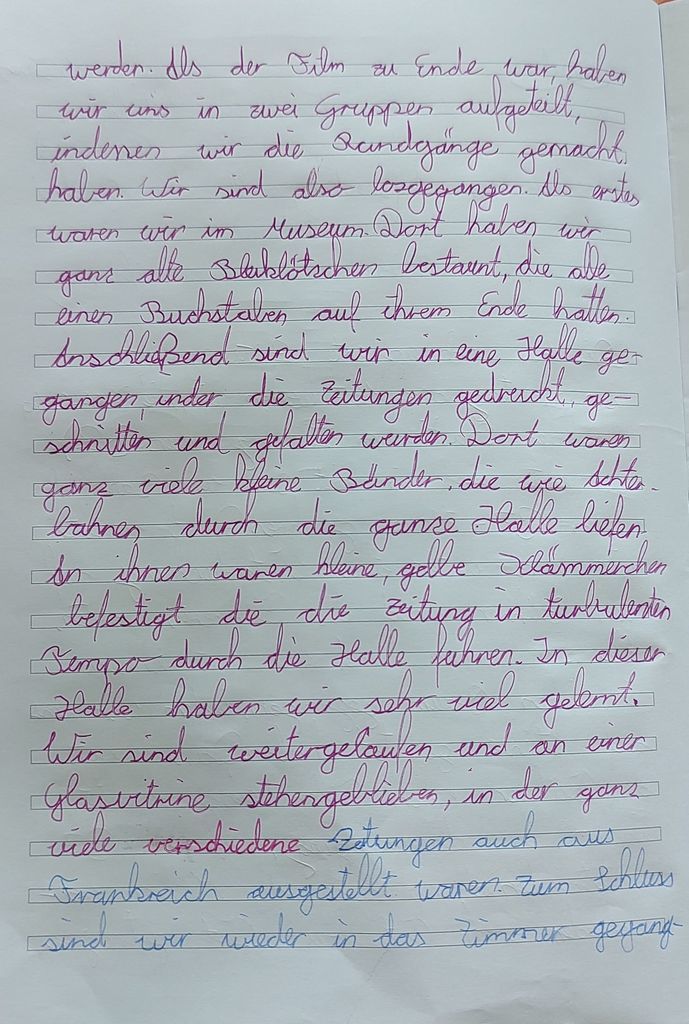 werden. Als der Film zu Ende war, haben
wir uns in zwei Gruppen aufgeteilt,
indenen wir die Rundgänge gemacht
haben. Wir sind also losgegangen. Als erstes
waren wir im Museum. Dort haben wir
ganz alte Bleiklötschen bestaunt, die alle
einen Buchstaben auf ihrem Ende hatten.
Anschließend sind wir in eine Halle ge-
gangen, inder die Zeitungen gedruckt, ge-
schnitten und gefalten wurden. Dort waren
ganz viele kleine Bänder, die wie Achter-
bahnen durch die ganze Halle liefen
An ihnen waren kleine, gelbe Klämmerchen
befestigt die die Zeitung in turbulenten
Tempo durch die Halle fuhren. In dieser
Halle haben wir sehr viel gelernt.
Wir sind weitergelaufen und an einer
Glasvitrine stehengeblieben, in der ganz
viele verschiedene Zetungen auch aus
Frankreich ausgestellt waren. Zum Schluss
sind wir wieder in das Zimmer gegang-